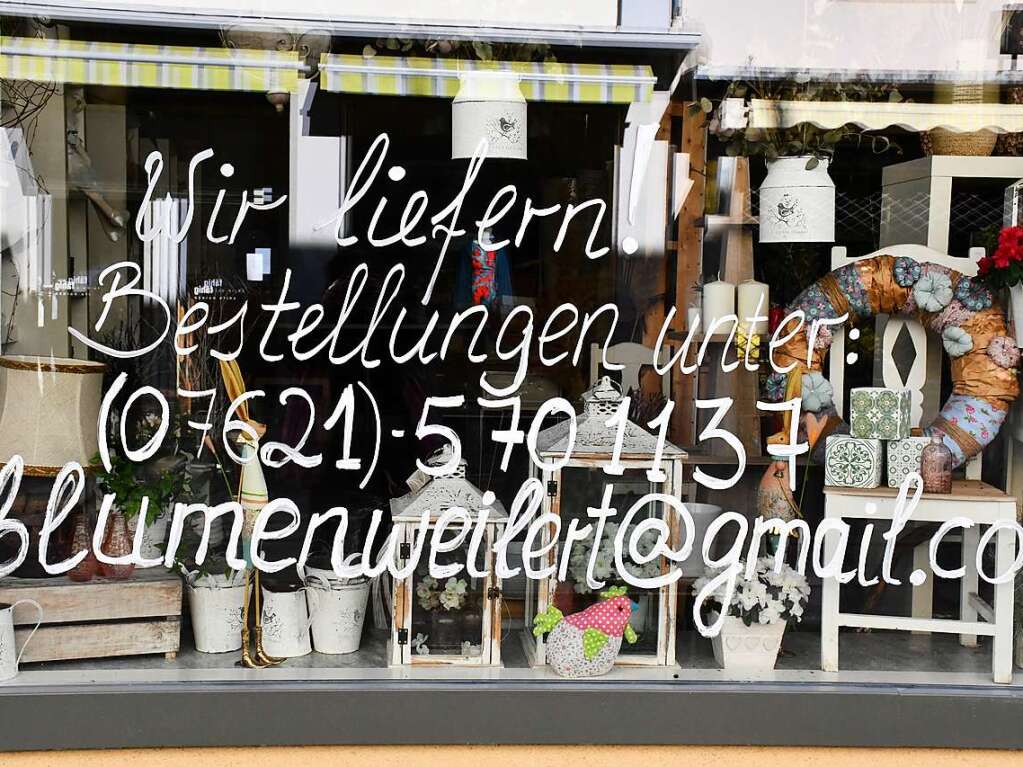 Wir liefern!
Bestellungen unter:
(07621)-5701137
blumenweilert@gmail.co